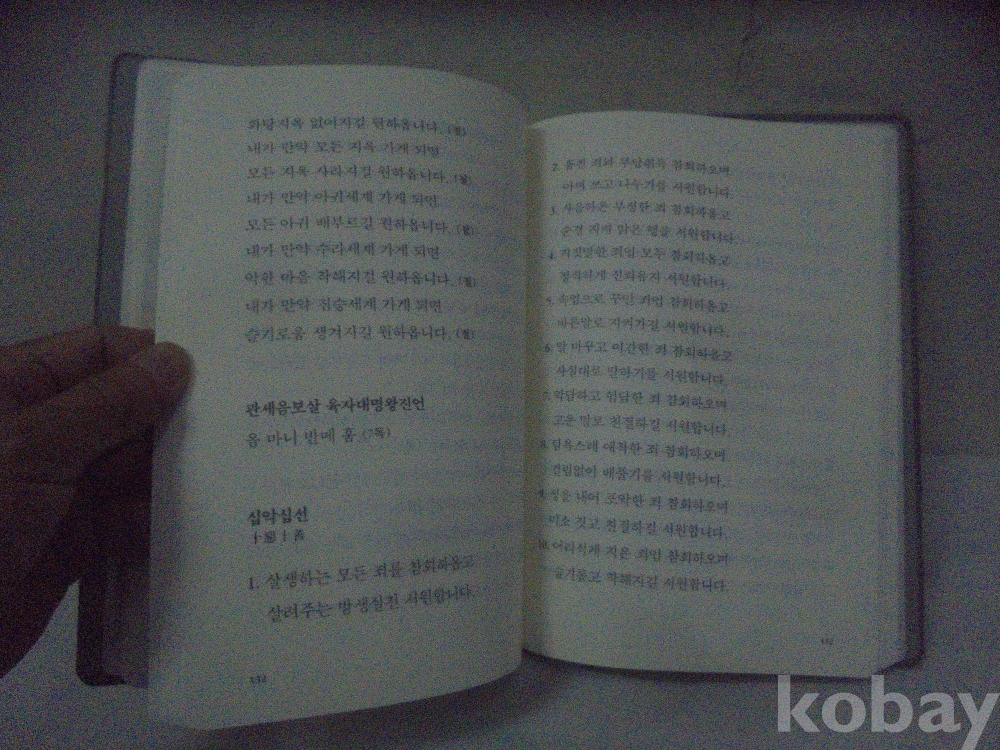 화탕지옥 없어지길 원하옵니다. (절)
내가 만약 모든 지옥 가게 되면
모든 지옥 사라지길 원하옵니다. (절)
내가 만약 아귀세계 가게 되면
모든 아귀 배부르길 원하옵니다. (절)
내가 만약 수라세계 가게 되면
악한 마음 착해지길 원하옵니다. (절)
내가 만약 짐승세계 가게 되면
슬기로움 생겨지길 원하옵니다. (절)
관세음보살 육자대명왕진언
옴 마니 반메 훔 (7독)
십악십선
十惡十善
1. 살생하는 모든 죄를 참회하옵고
살려주는 방생실천 서원합니다.
2. 훔친 죄와 부당취득 참회하오며
아껴 쓰고 나누기를 서원합니다.
3. 사음하온 부정한 죄 참회하옵고
순결 지켜 맑은 행을 서원합니다.
4. 거짓말한 죄업 모두 참회하옵고
정직하게 신뢰유지 서원합니다.
5. 속임으로 꾸민 죄업 참회하옵고
바른말로 지켜가길 서원합니다.
6. 말 바꾸고 이간한 죄 참회하옵고
사실대로 말하기를 서원합니다.
7. 악담하고 험담한 죄 참회하오며
고운 말로 친절하길 서원합니다.
8. 탐욕스레 애착한 죄 참회하오며
걸림없이 베풀기를 서원합니다.
9. 성을 내어 포악한 죄 참회하오며
미소 짓고 친절하길 서원합니다.
10. 어리석게 지은 죄업 참회하오며
슬기롭고 착해지길 서원합니다.
kobay